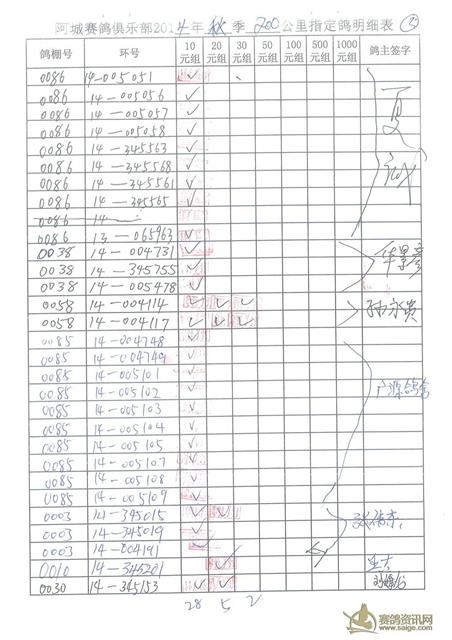 阿城赛鸽俱乐部2014年秋季200公里指定鸽明细表 ③
鸽棚号 环号 10元组 20元组 30元组 50元组 100元组 200元组 500元组 1000元组 鸽主签字
0086 14-005051 ✓
0086 14-005056 ✓
0086 14-005057 ✓
0086 14-005058 ✓
0086 14-345563 ✓
0086 14-345568 ✓
0086 14-345561 ✓
0086 14-345565 ✓
0086 14
0086 13-065963 ✓
0038 14-004731 ✓
0038 14-345755 ✓
0038 14-005478 ✓
0058 14-004114 ✓ ✓ ✓
0058 14-004117 ✓ ✓ ✓
0085 14-004748 ✓
0085 14-004749 ✓
0085 14-005101 ✓
0085 14-005102 ✓
0085 14-005103 ✓
0085 14-005104 ✓
0085 14-005105 ✓
0085 14-005107 ✓
0085 14-005108 ✓
0085 14-005109 ✓
0003 14-345015 ✓ ✓
0003 14-345019 ✓
0003 14-004191 ✓
0010 14-345201 ✓
0030 14-345153 ✓ ✓
28 5 2
赛鸽资讯网
www.saige.com